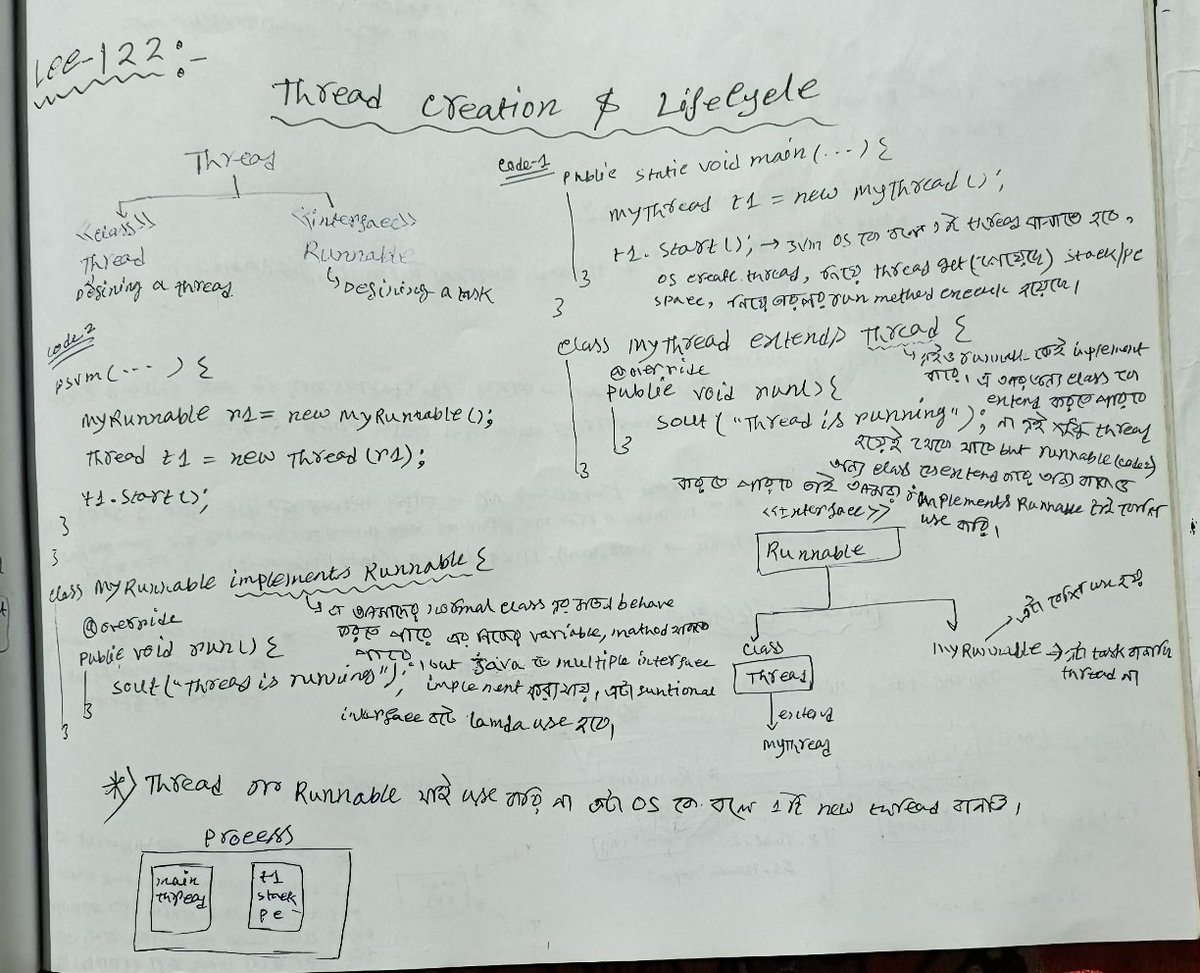 Lec-122:-
Thread Creation & Lifecycle
Thread
<<class>>
Thread
Defining a thread
<<interface>>
Runnable
Defining a task
Code-1
public static void main(...) {
MyThread t1 = new MyThread();
t1.start(); → JVM OS কে বলে 1টা thread বানাতে হবে,
OS create thread, thread get stack/pc
space, run method execute হয়েছে।
}
}
class MyThread extends Thread {
@override
public void run() {
sout("Thread is running");
}
}
runnable কেই implement
করে। class কে
extend করতে পারবে
না thread
হয়েই থেকে যাবে but runnable(code2)
class extend
করতে পারবে তাই আমরা implements Runnable টাই
use করি।
code-2
psvm(...) {
MyRunnable r1 = new MyRunnable();
Thread t1 = new Thread(r1);
t1.start();
}
}
class MyRunnable implements Runnable {
@override
public void run() {
sout("Thread is running");
}
}
আমাদের normal class এর মতন behave
করতে পারে এর নিজের variable, mathod থাকতে
পারবে, but Java তে multiple interface
implement করা যায়, এটা funtional
interface বটে lamda use হবে,
<<Interface>>
Runnable
class
Thread
extend
MyThread
MyRunnable → এটা task বানায়
thread না
এটা বেশি use হয়
*) Thread or Runnable যাই use করি না OS কে বলে 1টা new thread বানাতে।
Process
main
thread
t1
stack
pc